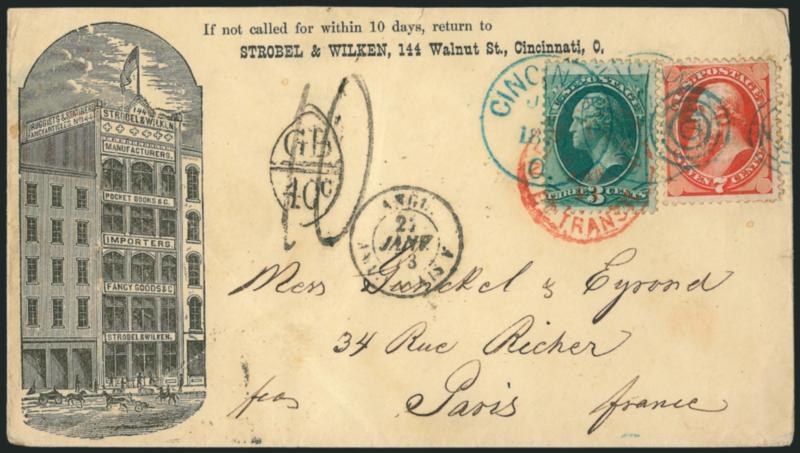 If not called for within 10 days, return to
STROBEL & WILKEN, 144 Walnut St., Cincinnati, O.
144
STROBEL & WILKEN.
DRUGGISTS & STATIONERS
FANCY ARTICLES No 144
MANUFACTURERS.
POCKET BOOKS & C.
IMPORTERS.
FANCY GOODS & C.
STROBEL & WILKEN.
GB
40c
10
ANGL.
JANV.
CINCIN
O.
U.S. POSTAGE
THREE 3 CENTS
U.S. POSTAGE
SEVEN 7 CENTS
TRANSIT
Mess Gunckel & Eyrond
34 Rue Richer
Paris France